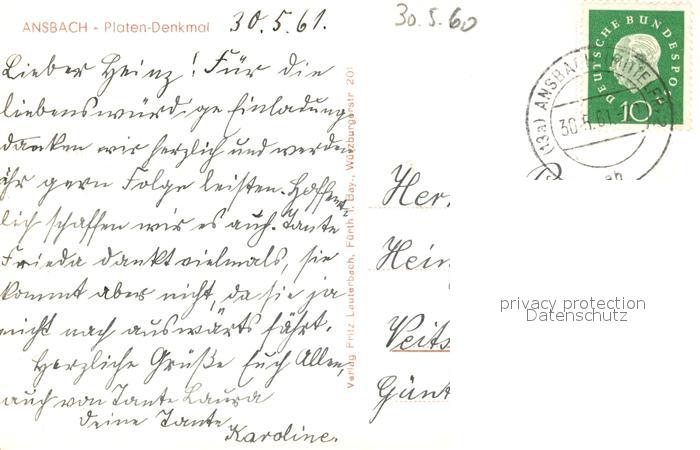 ANSBACH - Platen-Denkmal
30.5.61.
30.5.60
Lieber Heinz! Für die
liebenswürdige Einladung
danken wir herzlich und werden
ihr gern Folge leisten. Hoffent-
lich schaffen wir es auch. Tante
Frieda dankt vielmals, sie
kommt aber nicht, da sie ja
nicht nach auswärts fährt.
Herzliche Grüße Euch Allen,
auch von Tante Laura
deine Tante
Karoline.
Verlag Fritz Lauterbach, Fürth i. Bay., Würzburgerstr. 201
DEUTSCHE BUNDESPO
10
(13a) ANSBACH
30.5.61
Her
Hein
Veits
Günt
privacy protection
Datenschutz